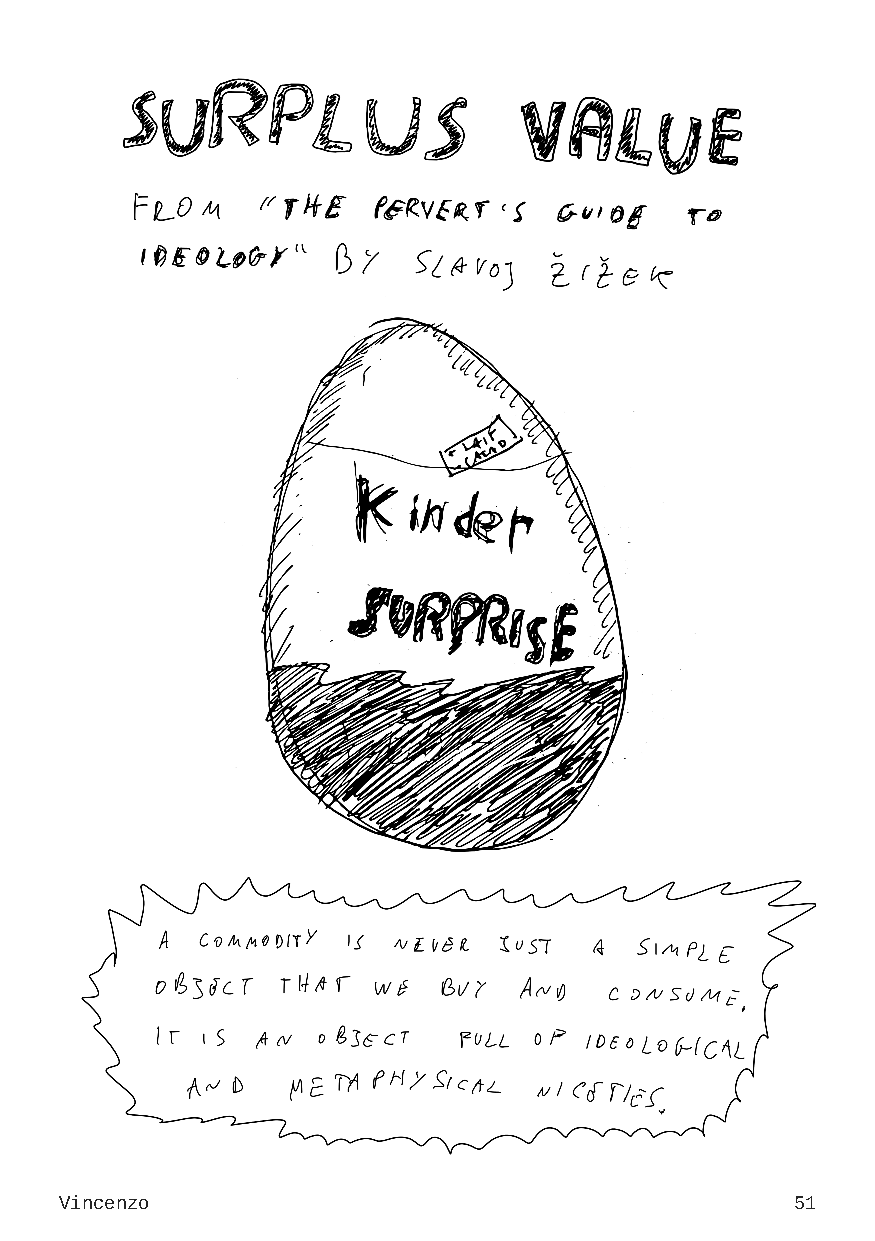 SURPLUS VALUE
FROM "THE PERVERT'S GUIDE TO
IDEOLOGY" BY SLAVOJ ŽIŽEK
+ LAIT
- CACAO
Kinder
SURPRISE
A COMMODITY IS NEVER JUST A SIMPLE
OBJECT THAT WE BUY AND CONSUME.
IT IS AN OBJECT FULL OF IDEOLOGICAL
AND METAPHYSICAL NICETIES.
Vincenzo 51